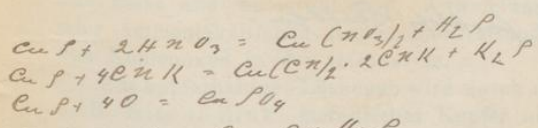 Cu S + 2HNO3 = Cu (NO3)2 + H2 S
Cu S + 4CNK = Cu(CN)2 · 2CNK + K2 S
Cu S + 4O = Cu SO4